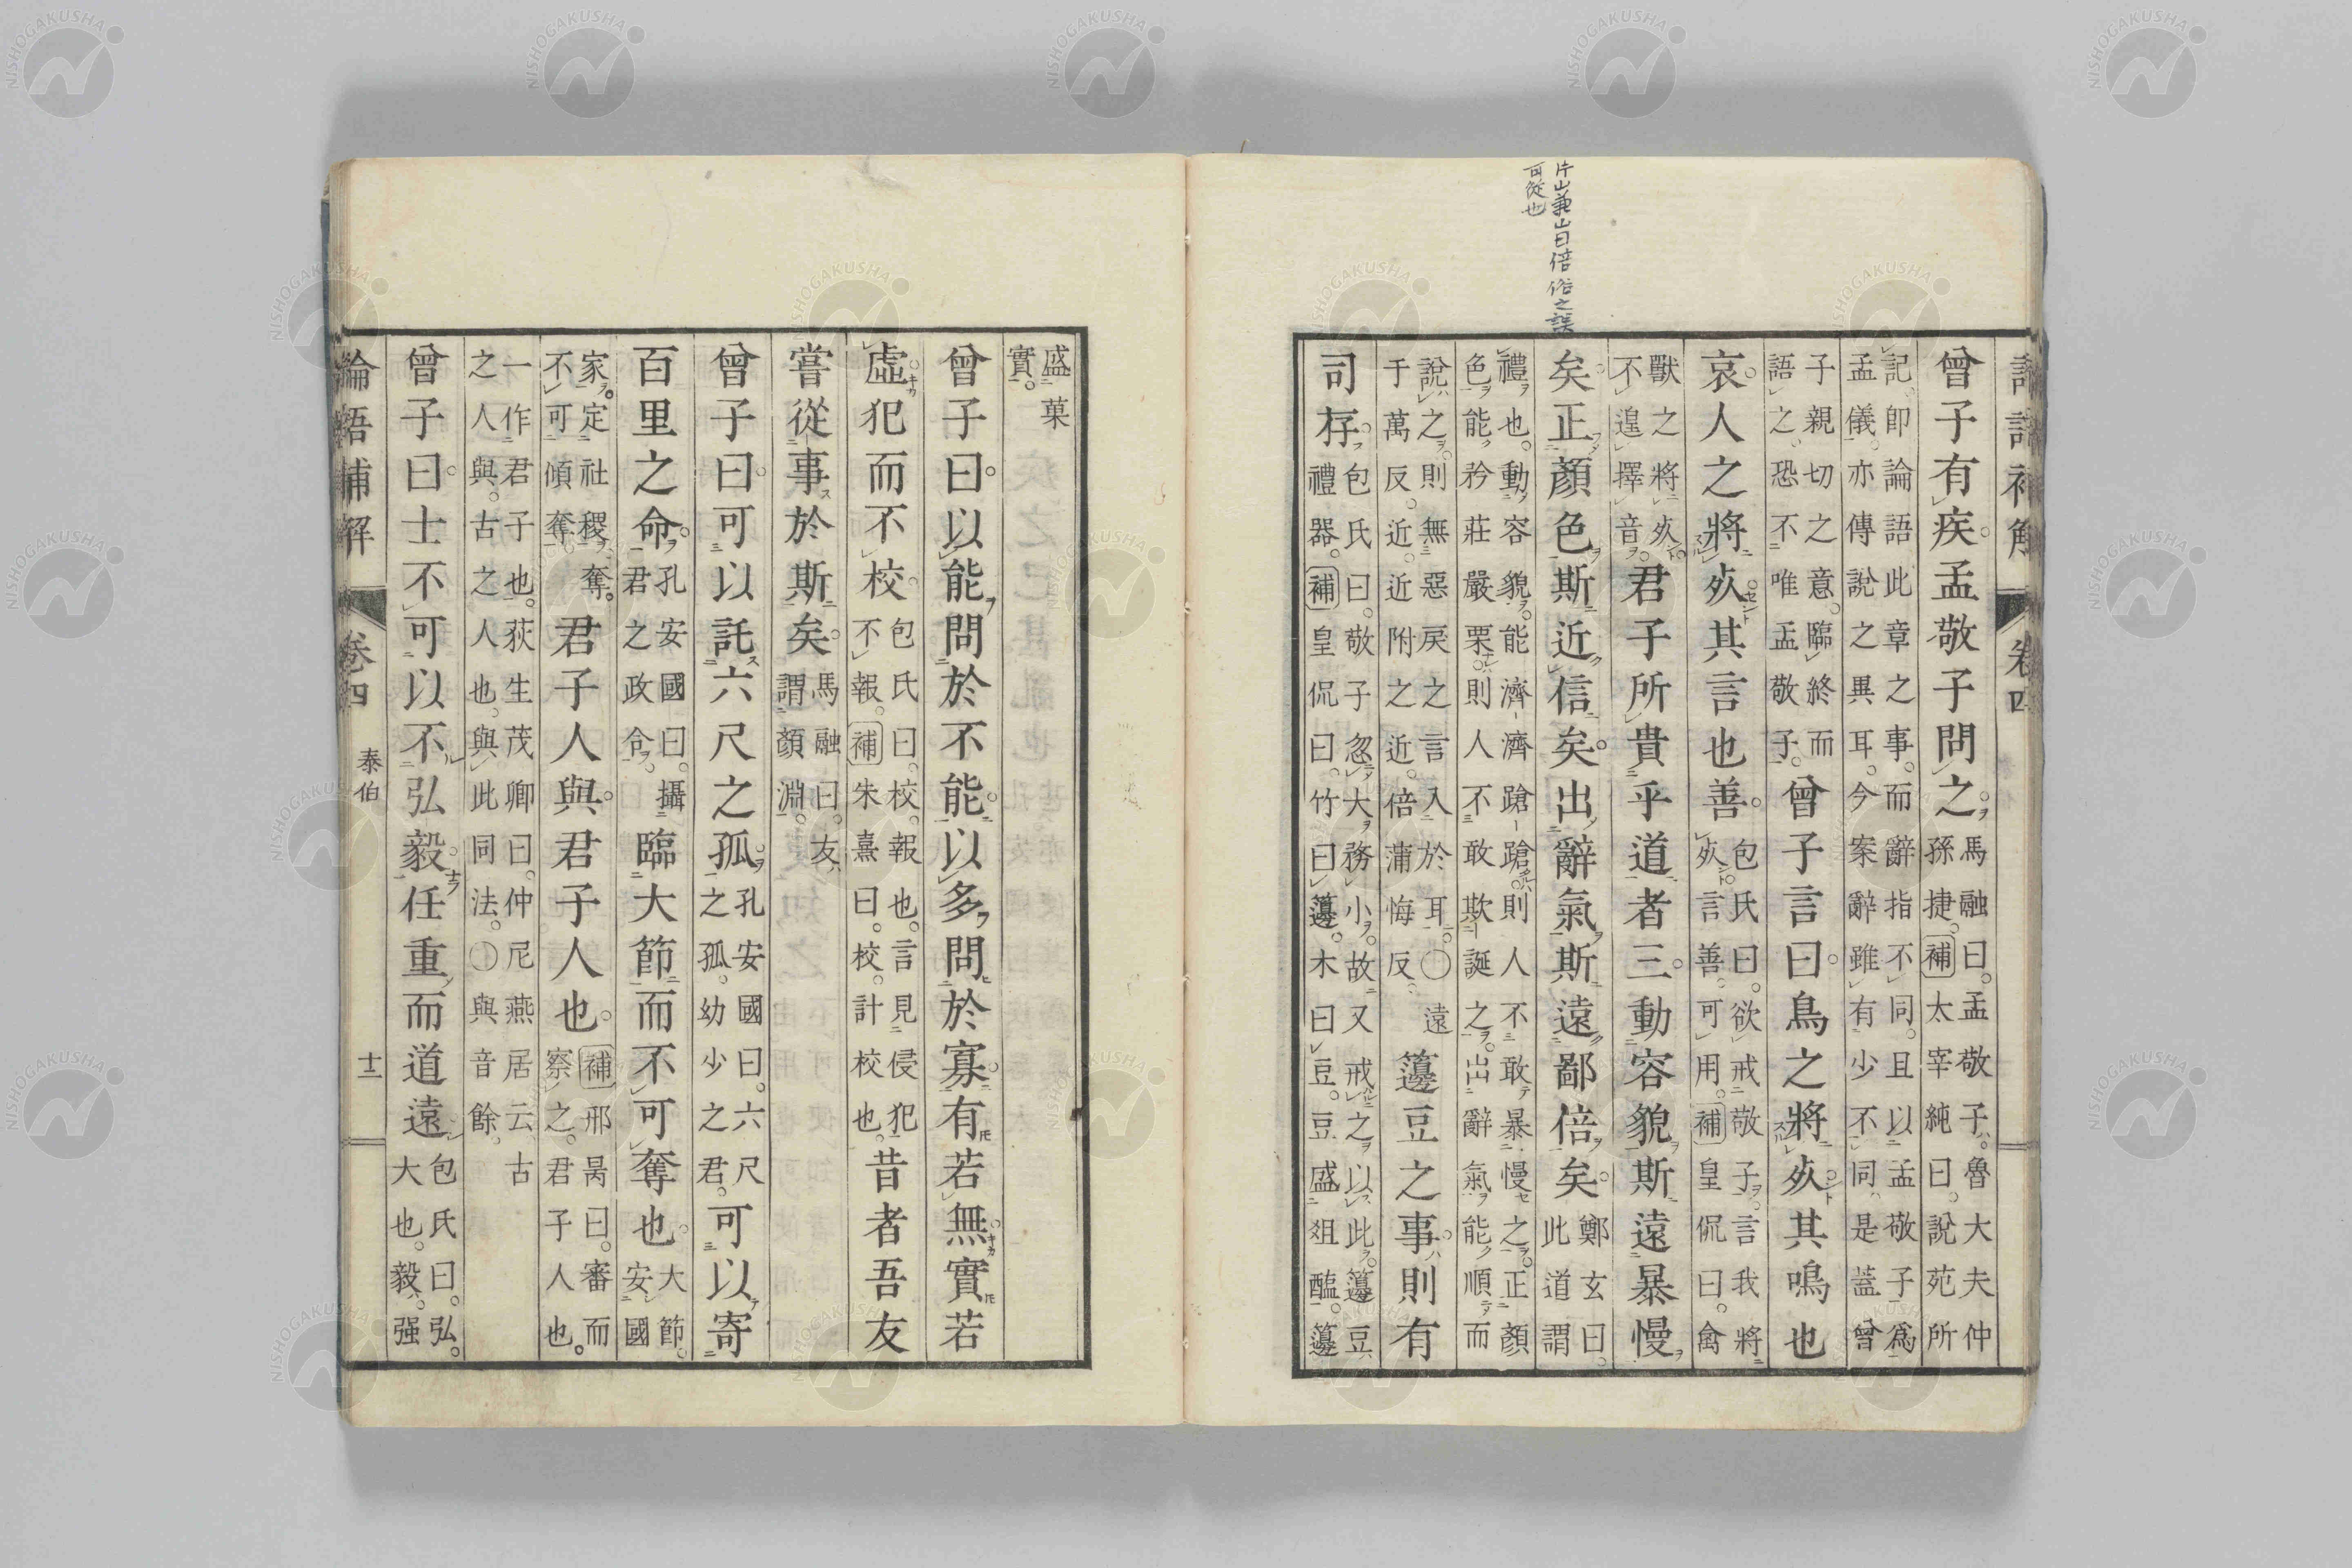 片山兼山曰倍俗之誤
可從也
論語補解 卷四
曾子有疾孟敬子問之馬融曰孟敬子魯大夫仲孫捷補太宰純曰說苑所
記卽論語此章之事而辭指不同且以孟敬子爲孟儀亦傳說之異耳今案辭雖有少不同是蓋曾
子親切之意臨終而語之恐不唯孟敬子曾子言曰鳥之將死其鳴也
哀人之將死其言也善包氏曰欲戒敬子言我將死言善可用補皇侃曰禽
獸之將死不遑擇音君子所貴乎道者三動容貌斯遠暴慢
矣正顏色斯近信矣出辭氣斯遠鄙倍矣鄭玄曰此道謂
禮也動容貌能濟濟蹌蹌則人不敢暴慢之正顏色能矜莊嚴栗則人不敢欺誕之出辭氣能順而
說之則無惡戾之言入於耳〇遠于萬反近近附之近倍蒲悔反籩豆之事則有
司存包氏曰敬子忽大務小故又戒之以此籩豆禮器補皇侃曰竹曰籩木曰豆豆盛俎醢籩
盛菓實
曾子曰以能問於不能以多問於寡有若無實若
虛犯而不校包氏曰校報也言見侵犯不報補朱熹曰校計校也昔者吾友
嘗從事於斯矣馬融曰友謂顏淵
曾子曰可以託六尺之孤孔安國曰六尺之孤幼少之君可以寄
百里之命孔安國曰攝君之政令臨大節而不可奪也大節安國
家定社稷奪不可傾奪君子人與君子人也補邢昺曰審而察之君子人也
一作君子也荻生茂卿曰仲尼燕居云古之人與古之人也與此同法〇與音餘
曾子曰士不可以不弘毅任重而道遠包氏曰弘大也毅强
論語補解 卷四 泰伯 十二